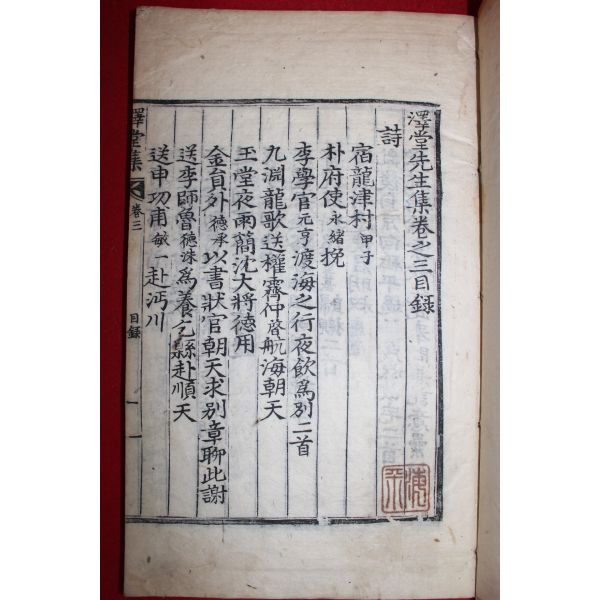 澤堂先生集卷之三目錄
詩
宿龍津村甲子
朴府使永緖挽
李學官元亨渡海之行夜飲爲別二首
九淵龍歌送權霽仲啓航海朝天
玉堂夜雨簡沈大將德用
金員外德承以書狀官朝天求別章聊此謝
送李師魯德洙爲養乞縣赴順天
送申功甫敏一赴沔川
澤堂集 卷三 目錄 一